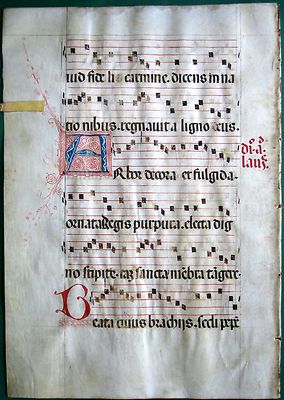 uid fideli carmine. dicens in na
tionibus. regnavit a ligno deus.
Arbor decora et fulgida.
ornata Regis purpura. electa dig
no stipite. tam sancta mēbra tāgere.
Beata cuius brachijs. secli pepē